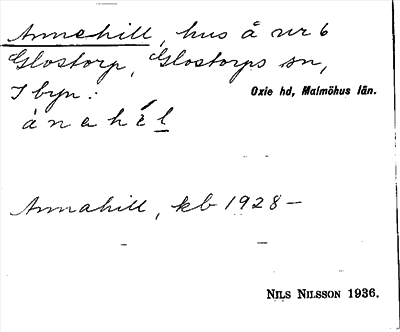 Annehill, hus å nr 6
Glostorp, Glostorps sn,
I byn:
Oxie hd, Malmöhus län.
ànahél
Annahill, kb 1928–
NILS NILSSON 1936.